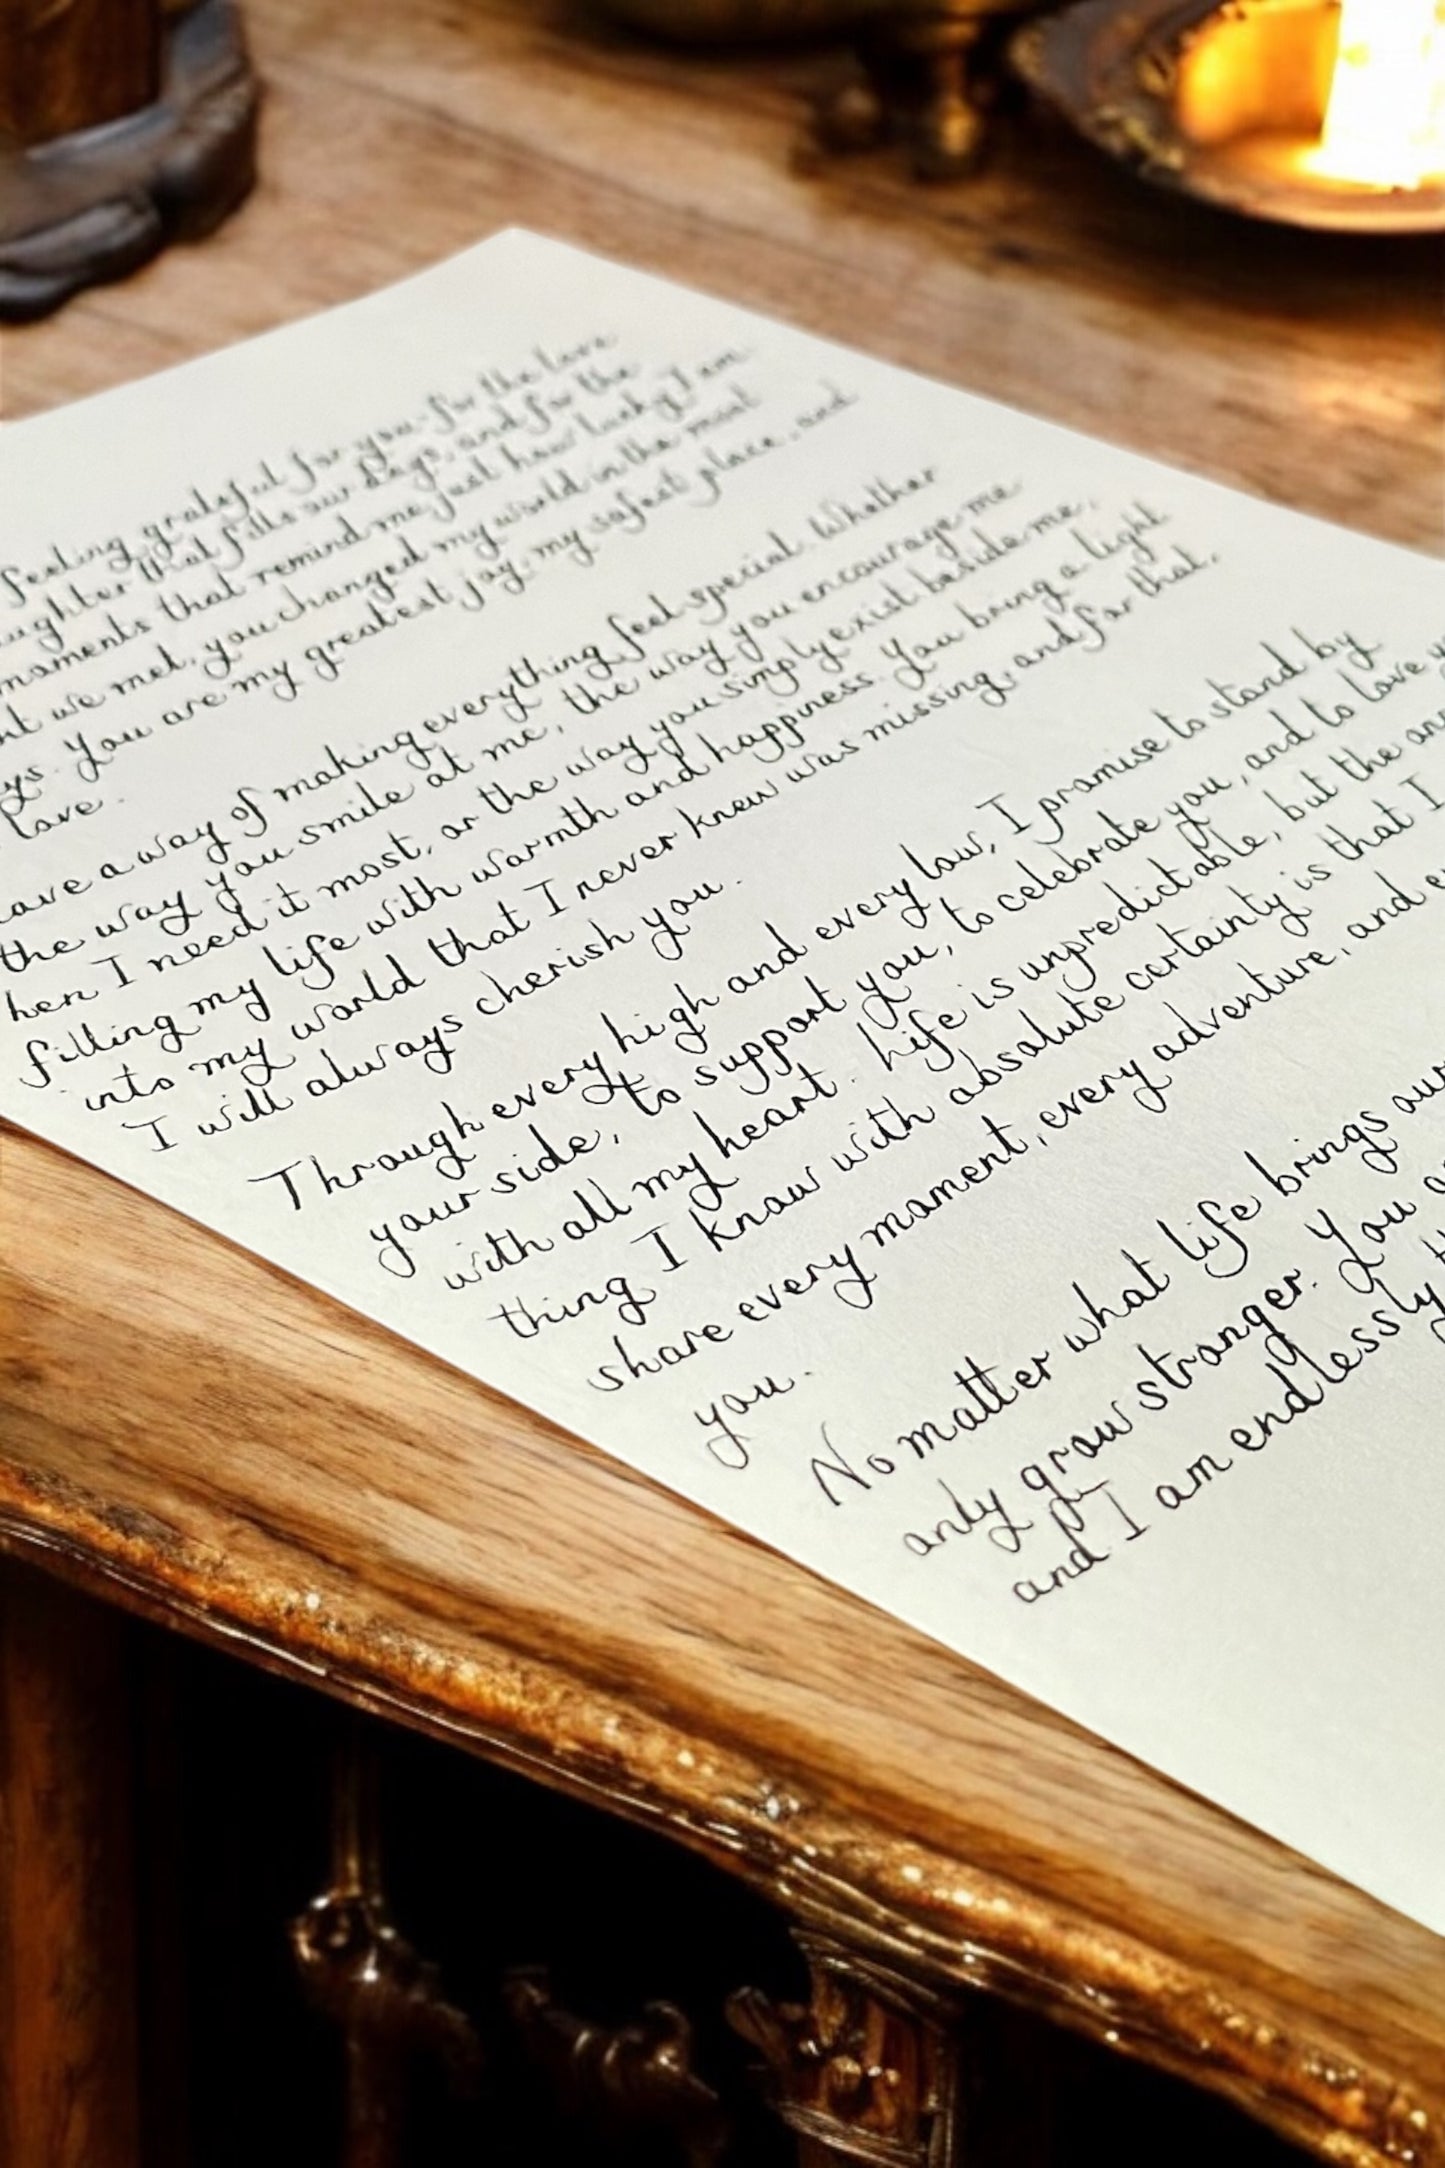 feeling grateful for you-for the love
laughter that fills our days, and for the
moments that remind me just how lucky I am
we met, you changed my world in the most
You are my greatest joy, my safest place, and
love.
have a way of making everything feel special. Whether
the way you smile at me, the way you encourage me
hen I need it most, or the way you simply exist beside me,
filling my life with warmth and happiness. You bring a light
into my world that I never knew was missing, and for that,
I will always cherish you.
Through every high and every low, I promise to stand by
your side, to support you, to celebrate you, and to love y
with all my heart. Life is unpredictable, but the one
thing I know with absolute certainty is that I
share every moment, every adventure, and e
you.
No matter what life brings our
only grow stronger. You a
and I am endlessly t